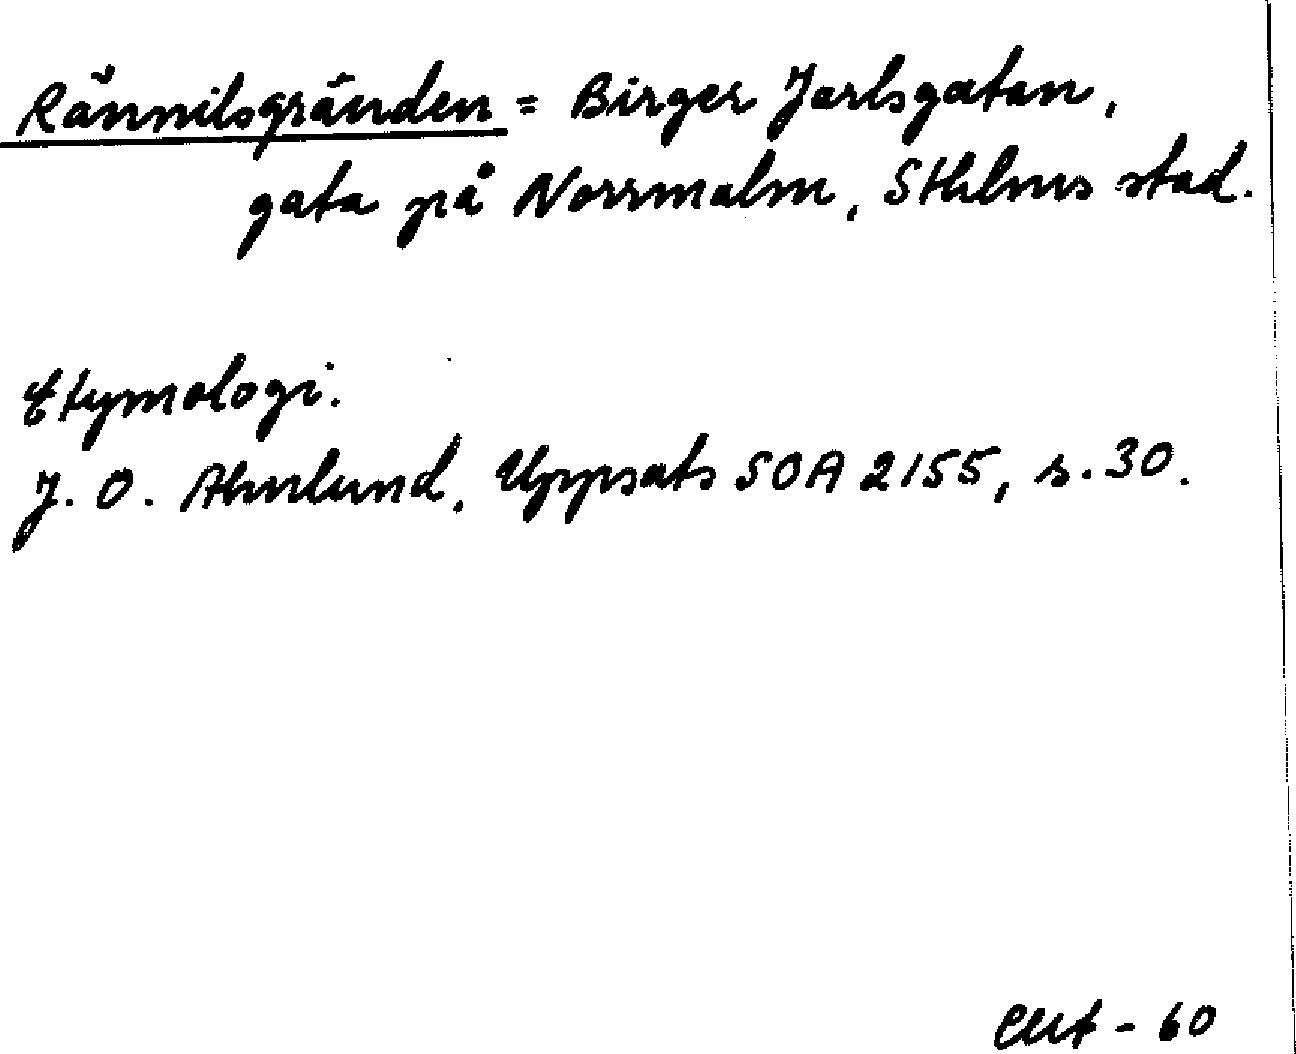 Rännilsgränden = Birger Jarlsgatan,
gata på Norrmalm, Sthlms stad.
Etymologi.
J. O. Ahnlund, Uppsats SOA 2155, s. 30.
- 60